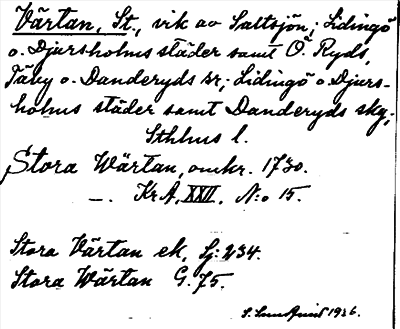 Värtan, St., vik av Saltsjön; Lidingö
o. Djursholms städer samt Ö. Ryds,
Täby o. Danderyds sr; Lidingö o. Djurs-
holms städer samt Danderyds skg;
Sthlms l.
Stora Wärtan, omkr. 1730.
—. Kr.A. XXII. N:o 15.
Stora Värtan ek. Sj: 234.
Stora Wärtan G. 75.
1926.